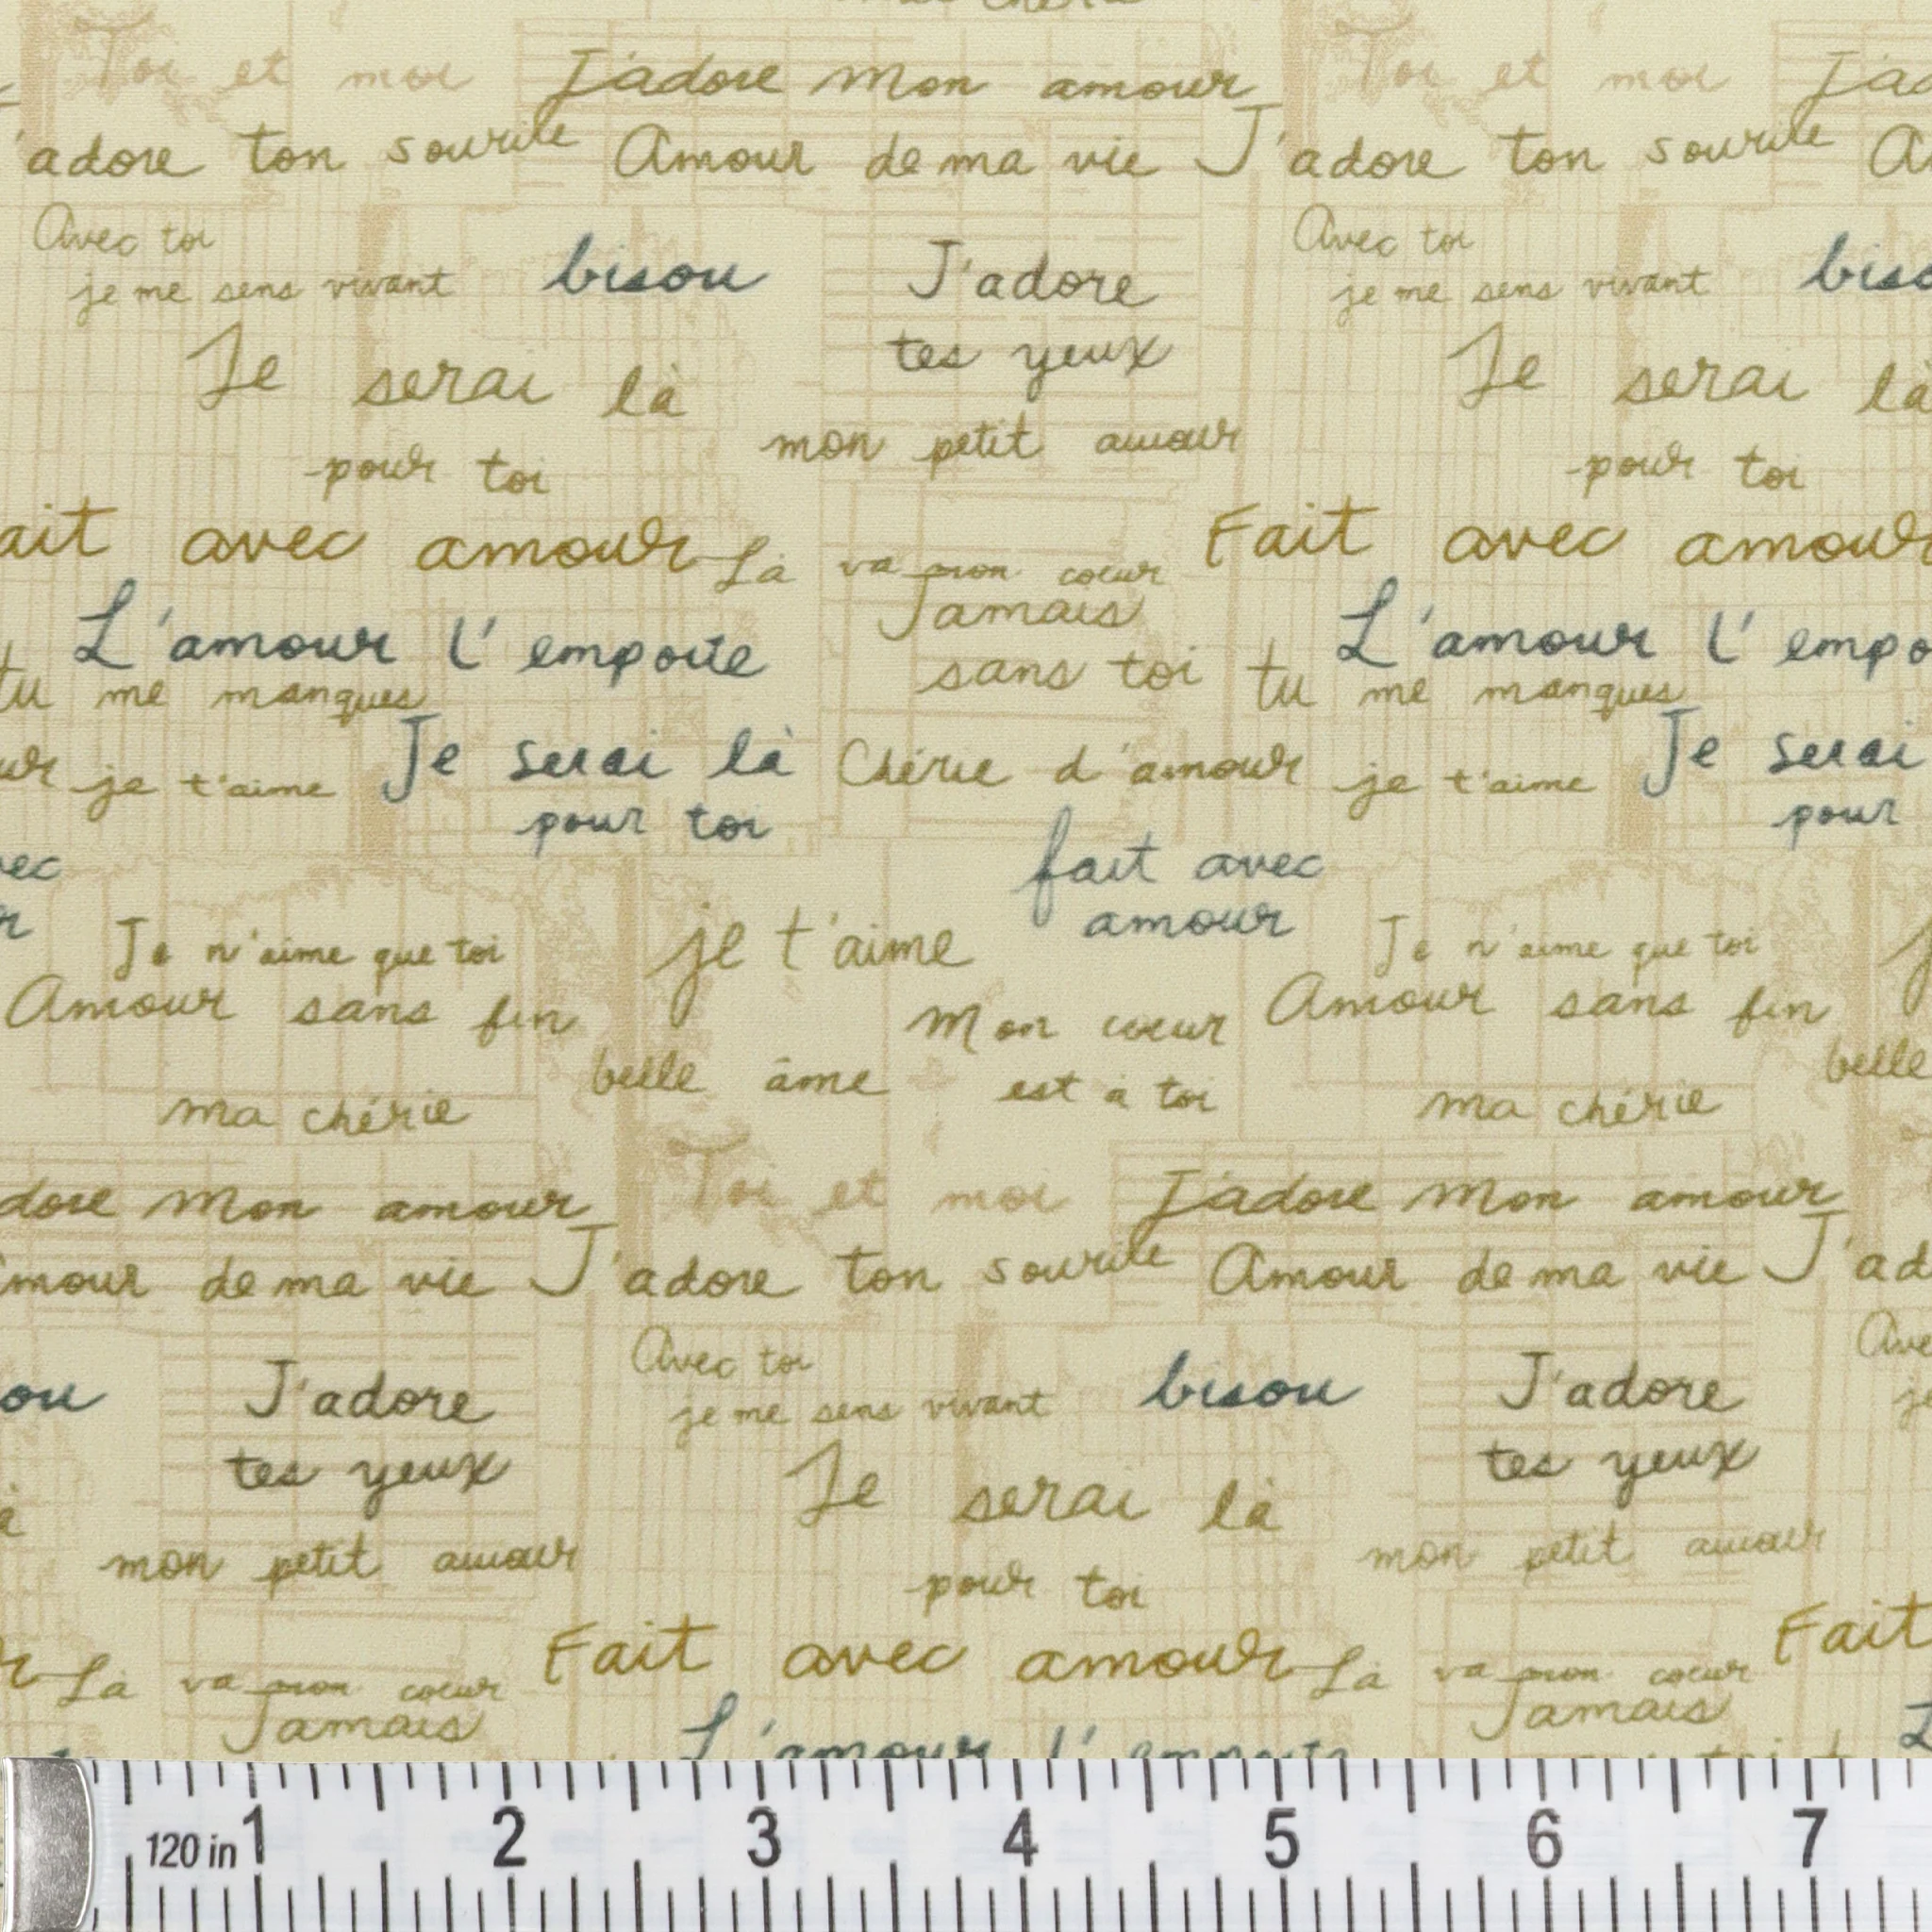 Toi et moi J'adore mon amour Toi et moi J'ad
'adore ton sourire Amour de ma vie J'adore ton sourire A
Avec toi Avec toi
je me sens vivant bisou J'adore je me sens vivant biso
tes yeux
Je serai là Je serai là
mon petit amour
pour toi pour toi
ait avec amour Là va mon coeur Fait avec amour
Jamais
L'amour l'emporte L'amour l'empo
sans toi
tu me manques tu me manques
ur je t'aime Je serai là Chérie d'amour je t'aime Je serai
pour toi pour
vec fait avec
r amour
Je n'aime que toi je t'aime Je n'aime que toi j
Amour sans fin Mon coeur Amour sans fin
belle âme est à toi belle
ma chérie ma chérie
dore mon amour Toi et moi J'adore mon amour
mour de ma vie J'adore ton sourire Amour de ma vie J'ad
Avec toi Ave
ou J'adore je me sens vivant bisou J'adore je
tes yeux tes yeux
à Je serai là
mon petit amour mon petit amour
pour toi
r Là va mon coeur Fait avec amour Là va mon coeur Fait
Jamais Jamais
L'amour l'emporte L
120 in 1 2 3 4 5 6 7